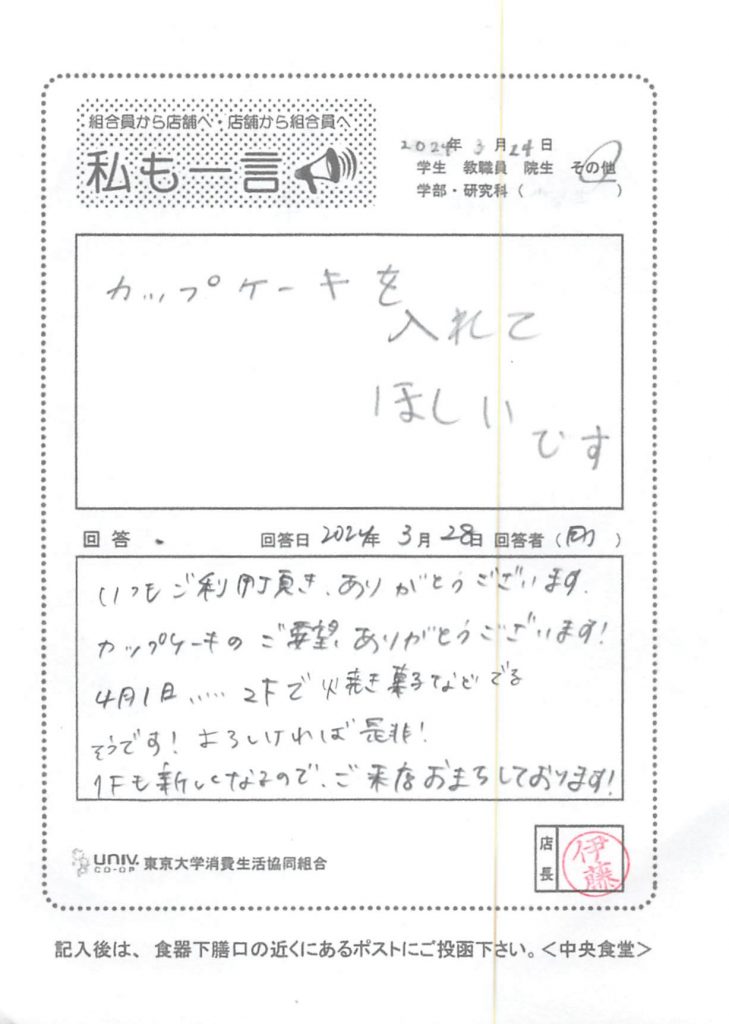 組合員から店舗へ・店舗から組合員へ
私も一言
2024年 3月24日
学生 教職員 院生 その他
学部・研究科（ ）
カップケーキを
入れて
ほしい
です
回答 . 回答日 2024年 3月28日 回答者（岡）
いつもご利用頂き、ありがとうございます.
カップケーキのご要望、ありがとうございます!
4月1日、.... 2Fで焼き菓子などでる
そうです! よろしければ是非!
1Fも新しくなるので、ご来店おまちしております!
UNIV. CO-OP 東京大学消費生活協同組合
店長
伊藤
記入後は、食器下膳口の近くにあるポストにご投函下さい。＜中央食堂＞